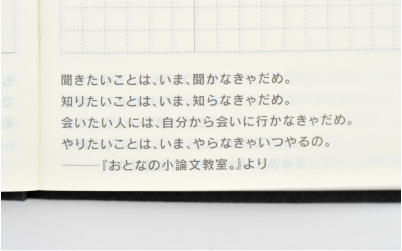 聞きたいことは、いま、聞かなきゃだめ。
知りたいことは、いま、知らなきゃだめ。
会いたい人には、自分から会いに行かなきゃだめ。
やりたいことは、いま、やらなきゃいつやるの。
———『おとなの小論文教室。』より